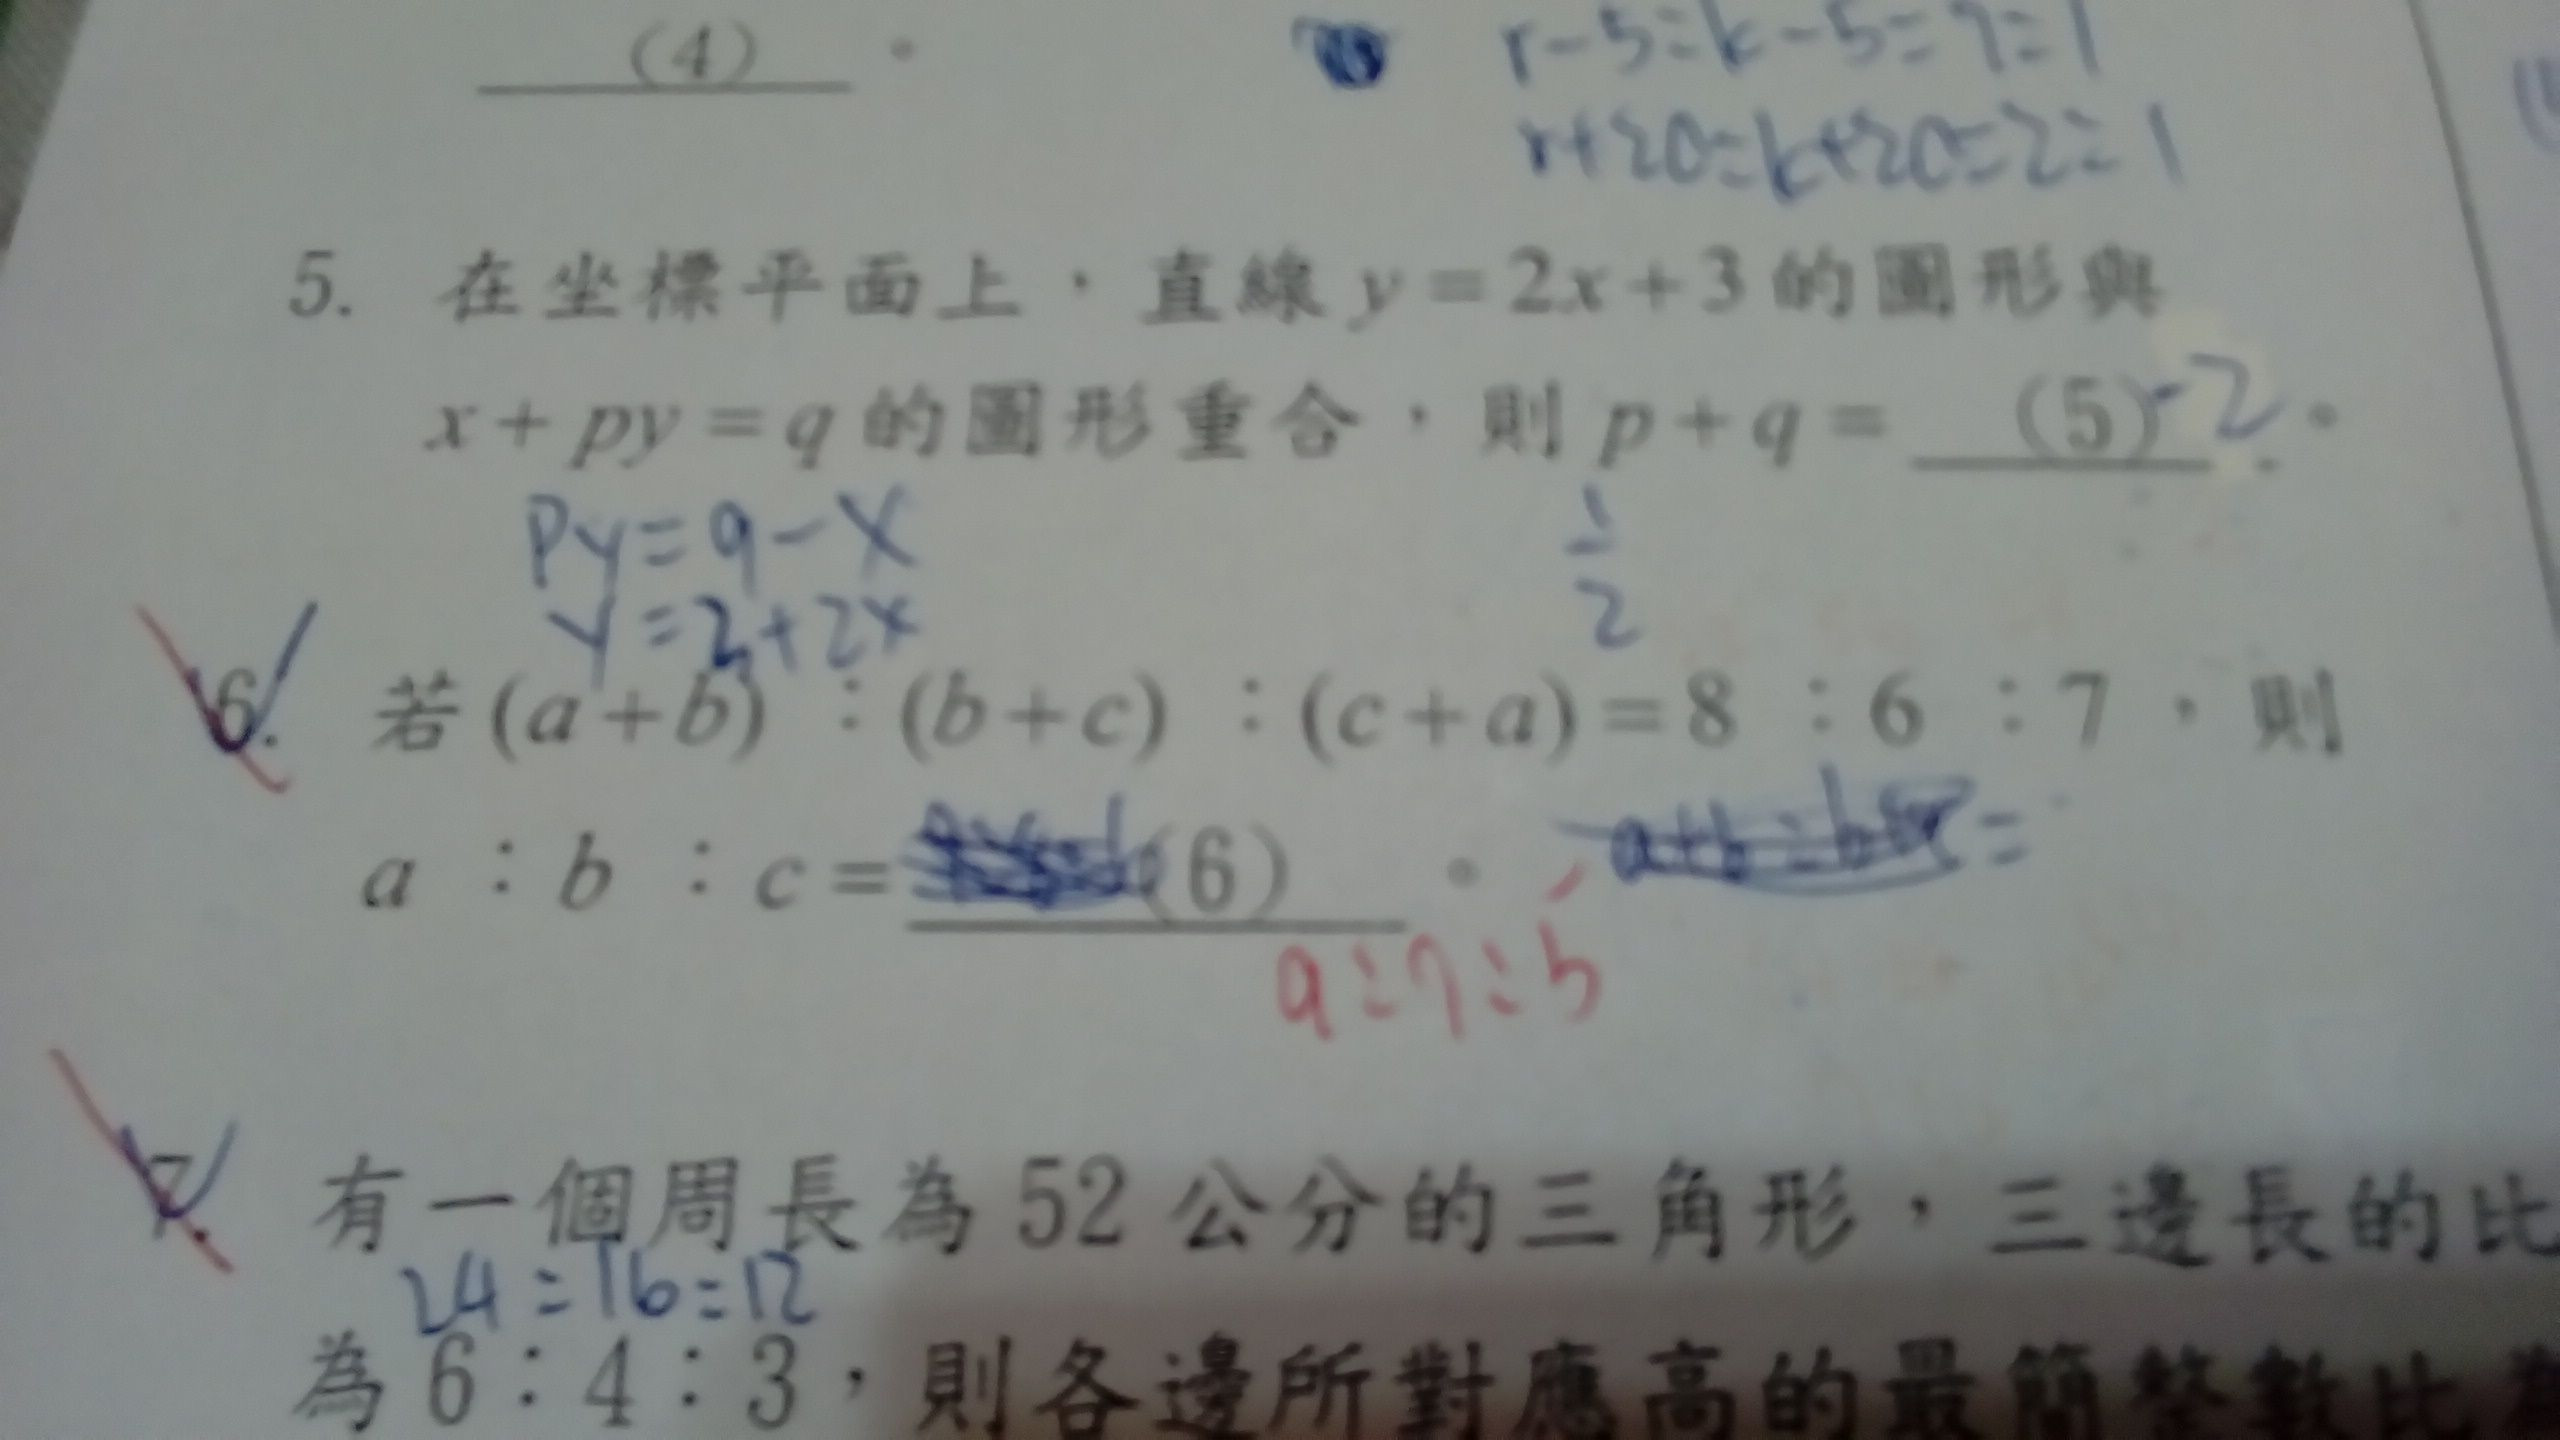 (4)。
r-5=k-5=7=1
r+20=k+20=2=1
5. 在坐標平面上，直線y=2x+3的圖形與
x+py=q的圖形重合，則p+q=(5)-2。
Py=q-x
y=3+2x
1/2
6. 若(a+b):(b+c):(c+a)=8:6:7，則
a:b:c=(6)。 =
9:7:5
7. 有一個周長為52公分的三角形，三邊長的比
24=16=12
為6:4:3，則各邊所對應高的最簡整數比為